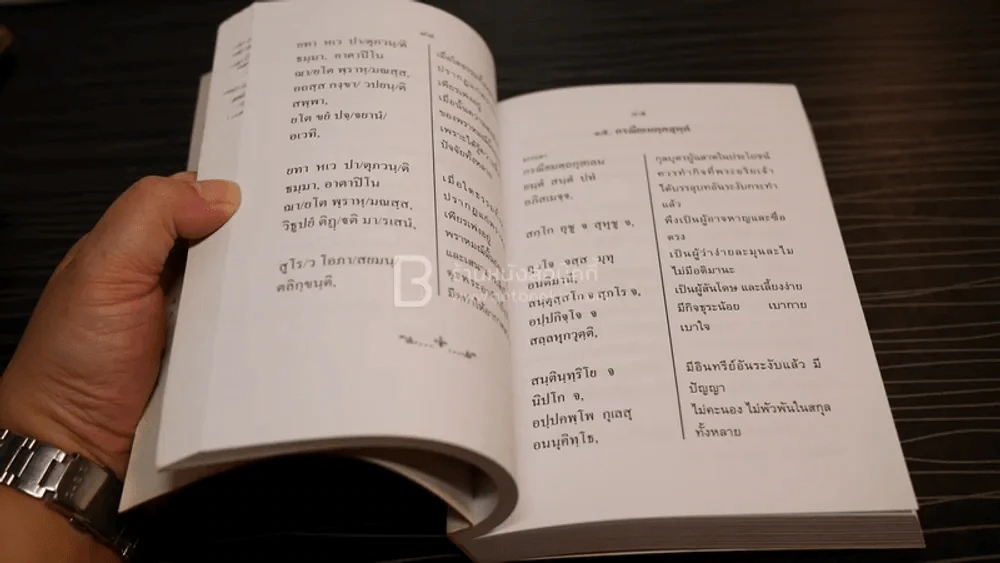 ยทา หเว ปา/ตุภวนฺ/ติ
ธมฺมา, อาตาปิโน
ฌา/ยโต พฺราหฺ/มณสฺส,
อถสฺส กงฺขา/ วปยนฺ/ติ
สพฺพา,
ยโต ขยํ ปจฺ/จยานํ/
อเวทิ,
ยทา หเว ปา/ตุภวนฺ/ติ
ธมฺมา, อาตาปิโน
ฌา/ยโต พฺราหฺ/มณสฺส,
วิธูปยํ ติฏฺ/ฐติ มา/รเสนํ,
สูโร/ว โอภา/สยมนฺ
ตลิกฺขนฺติ,
เมื่อใดธรรม
ปรากฏแก่พราหมณ์
เพียรเพ่งอยู่
เมื่อนั้นความ
ของพราหมณ์
เพราะได้รู้ความ
ปัจจัยทั้งหลาย
เมื่อใดธรรม
ปรากฏแก่พราหมณ์
เพียรเพ่งอยู่
๑๕. กรณียเมตฺตสุตฺตํ
กรณียมตฺถกุสเลน
ยนฺตํ สนฺตํ ปทํ
อภิสเมจฺจ,
สกฺโก อุชู จ สุหุชู จ,
สุวโจ จสฺส มุทุ
อนติมานี,
สนฺตุสฺสโก จ สุภโร จ,
อปฺปกิจฺโจ จ
สลฺลหุกวุตฺติ,
สนฺตินฺทฺริโย จ
นิปโก จ,
อปฺปคพฺโพ กุเลสุ
อนนุคิทฺโธ,
กุลบุตรผู้ฉลาดในประโยชน์
ควรทำกิจที่พระอริยเจ้า
ได้บรรลุบทอันระงับกระทำ
แล้ว
พึงเป็นผู้อาจหาญและซื่อ
ตรง
เป็นผู้ว่าง่ายละมุนละไม
ไม่มีอติมานะ
เป็นผู้สันโดษ และเลี้ยงง่าย
มีกิจธุระน้อย เบากาย
เบาใจ
มีอินทรีย์อันระงับแล้ว มี
ปัญญา
ไม่คะนอง ไม่พัวพันในสกุล
ทั้งหลาย